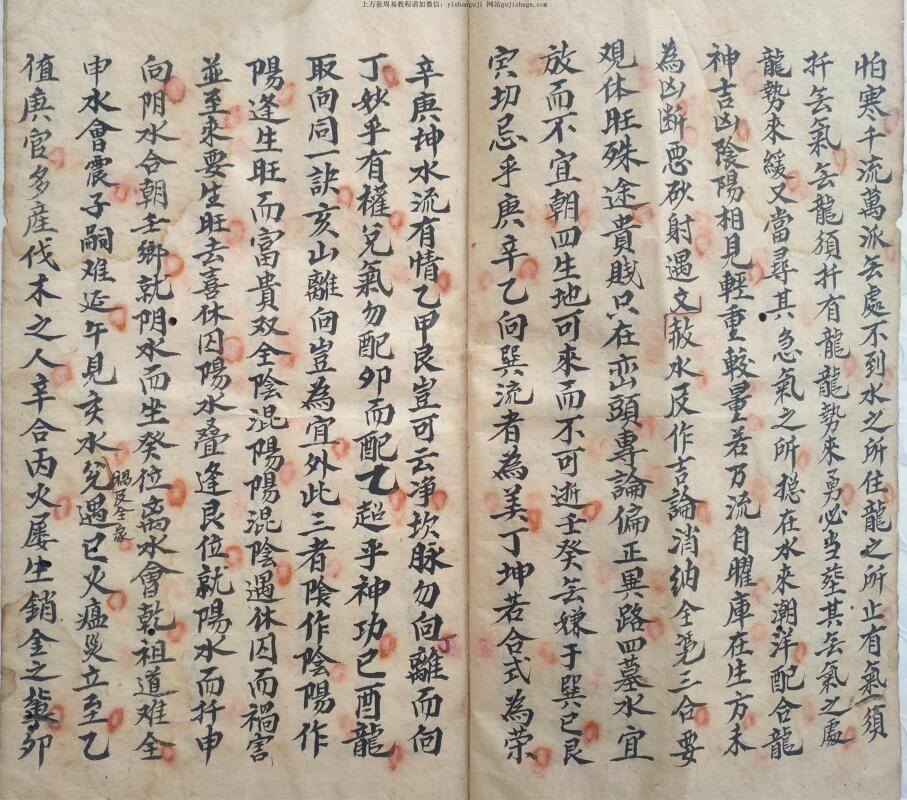 上万套周易教程请加微信：yishanguji 网站gujishuge.com
怕寒千流萬派无處不到水之所住龍之所止有氣須
扦无氣无龍須扦有龍龍勢來勇必当塟其无氣之處
龍勢來緩又當尋其急氣之所稳在水來潮洋配合龍
神吉凶陰陽相見輕重較量若万流自曜庫在生方未
為凶断惡砂射遇文赦水反作吉論消納全凴三合要
观休旺殊途貴賎只在峦頭專論偏正異路四墓水宜
放而不宜朝四生地可來而不可逝壬癸无嫌于巽已艮
寅切忌乎庚辛乙向巽流者為美丁坤若合式為荣
辛庚坤水流有情乙甲艮豈可云净坎脉勿向離而向
丁
丁妙乎有權兑氣勿配卯而配乙超乎神功已酉龍
取向同一訣亥山離向豈為宜外此三者陰作陰陽作
陽逢生旺而富貴双全陰混陽陽混陰遇休囚而禍害
並至來要生旺去喜休囚陽水疊逢艮位就陽水而扦申
向阴水合朝壬鄉就阴水而坐癸位离水會乾祖道难全
禍反全廢
申水會震子嗣难延午見亥水兊遇已火瘟災立至乙
值庚官多產伐木之人辛合丙火屢生銷金之輩卯